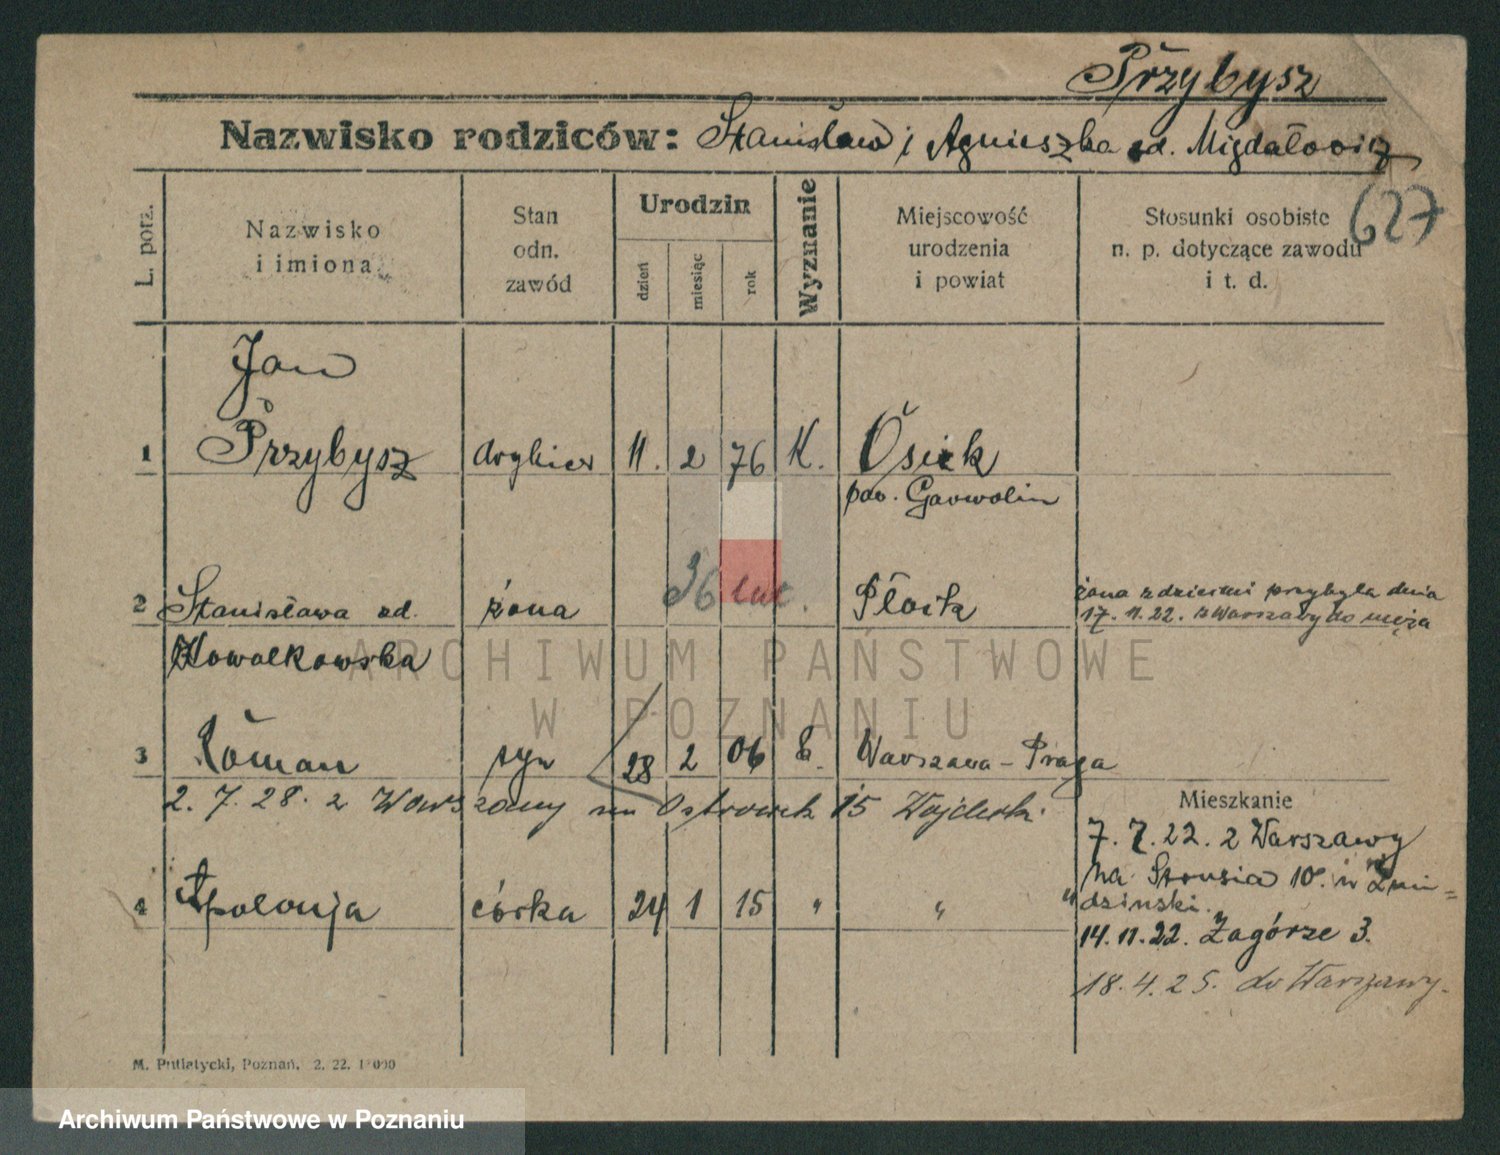 Przybysz
Nazwisko rodziców: Stanisław i Agnieszka od. Migdałowicz
627
L. porz.
Nazwisko
i imiona
Stan
odn.
zawód
Urodzin
dzień
miesiąc
rok
Wyznanie
Miejscowość
urodzenia
i powiat
Stosunki osobiste
n. p. dotyczące zawodu
i t. d.
Jan
1 Przybysz 11. 2 76 K. Osiek
pow. Garwolin
2 Stanisława od. żona 36 lat. Płock
Nowalkowska
żona z dziećmi przybyła dnia
17. 11. 22. z Warszawy do męża
3 Roman syn 28 2 06 k. Warszawa - Praga
2. 7. 28. z Warszawy na Ostrówek 15
4 Apolonja córka 24 1 15 " " "
Mieszkanie
7. 7. 22. z Warszawy
na 10. u Żmi-
dzinski.
14. 11. 22. Zagórze 3.
18. 4. 25. do Warszawy.
M. Putiatycki, Poznań. 2. 22.
ARCHIWUM PAŃSTWOWE
W POZNANIU
Archiwum Państwowe w Poznaniu